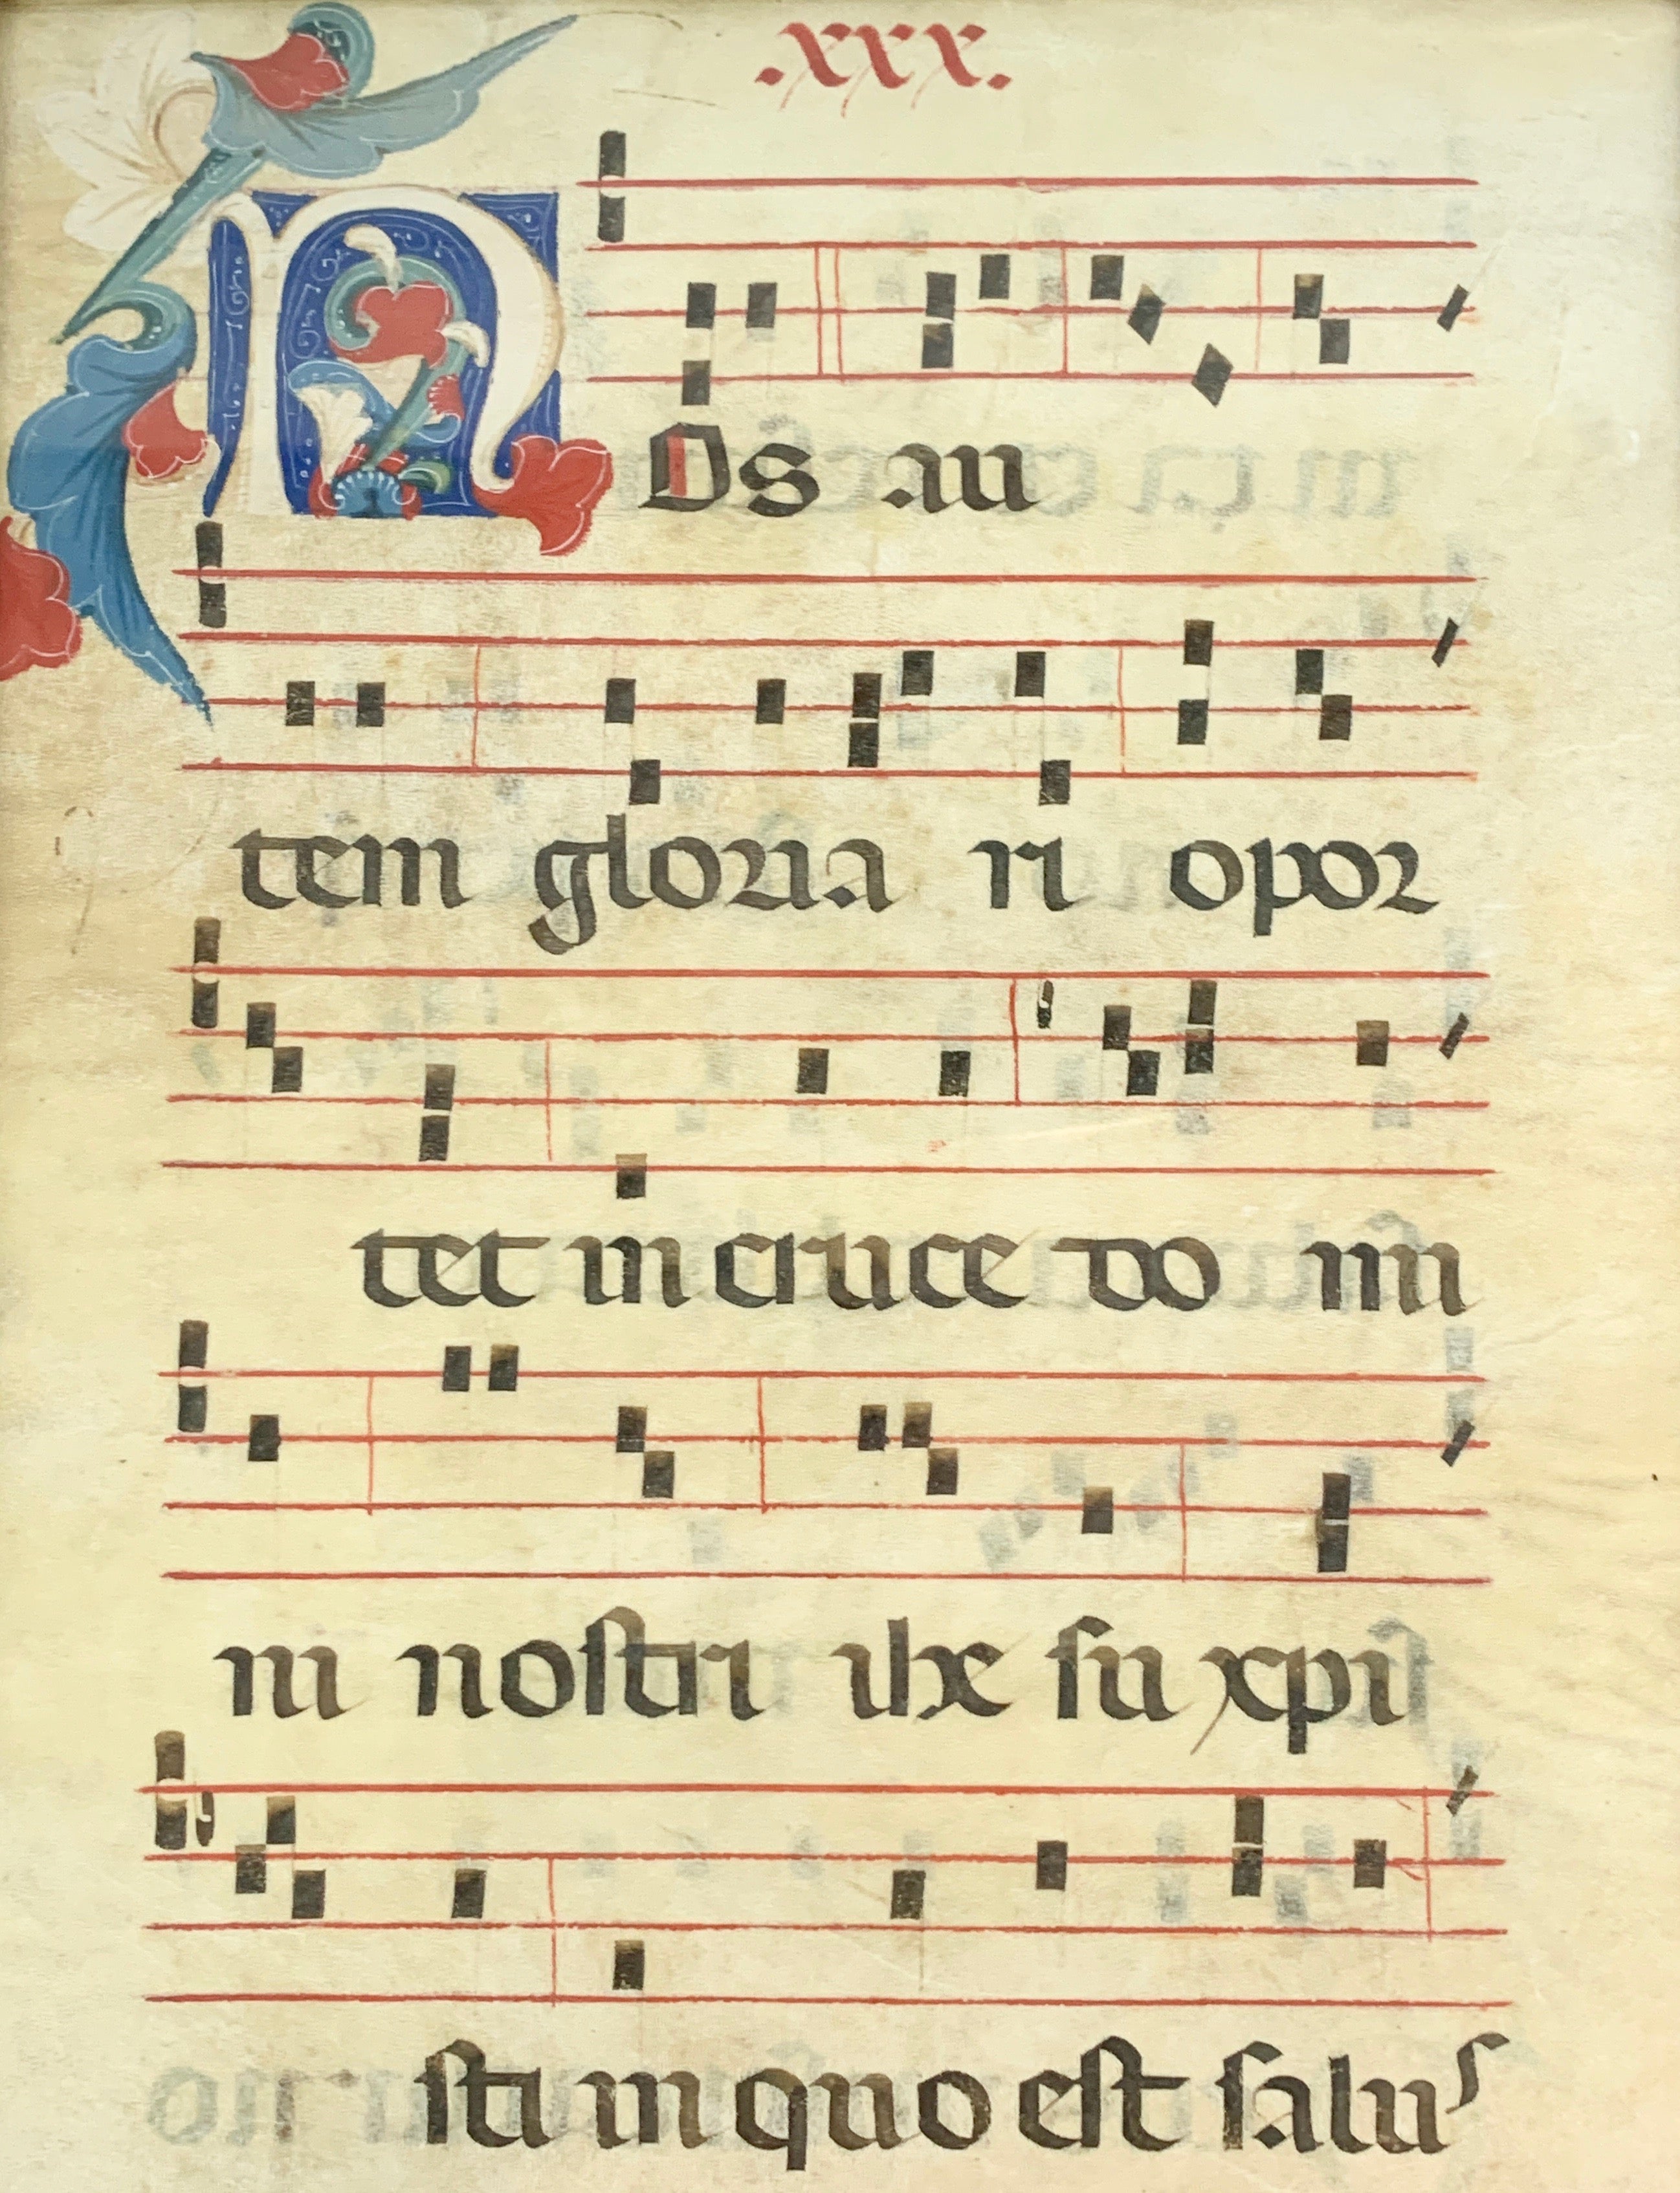 .xxx.
NOs au
tem gloria ri opor
tet in cruce do mi
ni nostri ihe su xpi
sti in quo est salus